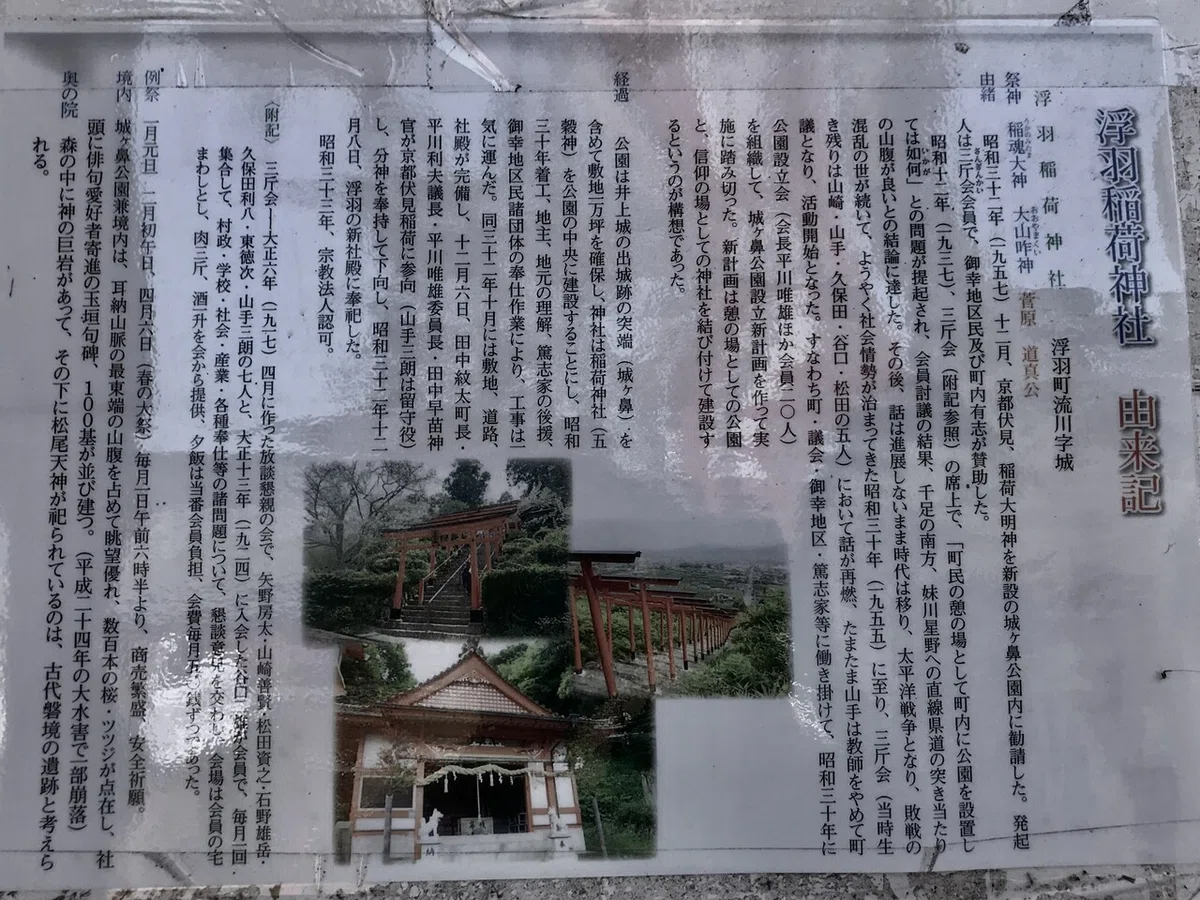 浮羽稲荷神社 由来記
浮羽稲荷神社 浮羽町流川字城
祭神 稲魂大神 大山咋神 菅原 道真公
由緒 昭和三十二年(一九五七)十二月、京都伏見、稲荷大明神を新設の城ヶ鼻公園内に勧請した。発起
人は三斤会会員で、御幸地区民及び町内有志が賛助した。
昭和十二年(一九三七)、三斤会(附記参照)の席上で、「町民の憩の場として町内に公園を設置し
ては如何」との問題が提起され、会員討議の結果、千足の南方、妹川星野への直線県道の突き当たり
の山腹が良いとの結論に達した。その後、話は進展しないまま時代は移り、太平洋戦争となり、敗戦の
混乱の世が続いて、ようやく社会情勢が治まってきた昭和三十年(一九五五)に至り、三斤会(当時生
き残りは山崎・山手・久保田・谷口・松田の五人)において話が再燃、たまたま山手は教師をやめて町
議となり、活動開始となった。すなわち町・議会・御幸地区・篤志家等に働き掛けて、昭和三十年に
公園設立会(会長平川唯雄ほか会員二〇人)
を組織して、城ヶ鼻公園設立新計画を作って実
施に踏み切った。新計画は憩の場としての公園
と、信仰の場としての神社を結び付けて建設す
るというのが構想であった。
経過 公園は井上城の出城跡の突端(城ヶ鼻)を
含めて敷地一万坪を確保し、神社は稲荷神社(五
穀神)を公園の中央に建設することにし、昭和
三十年着工、地主、地元の理解、篤志家の後援、
御幸地区民諸団体の奉仕作業により、工事は一
気に運んだ。同三十二年十月には敷地、道路、
社殿が完備し、十二月六日、田中紋太町長・
平川利夫議長・平川唯雄委員長・田中早苗神
官が京都伏見稲荷に参向(山手三朗は留守役)
し、分神を奉持して下向し、昭和三十二年十二
月八日、浮羽の新社殿に奉祀した。
昭和三十三年、宗教法人認可。
〈附記〉 三斤会――大正六年(一九一七)四月に作った放談懇親の会で、矢野房太・山崎善賢・松田資之・石野雄岳・
久保田利八・東徳次・山手三朗の七人と、大正十三年(一九二四)に入会した谷口 雄が会員で、毎月一回
集合して、村政・学校・社会・産業・各種奉仕等の諸問題について、懇談意見を交わし、会場は会員の宅
まわしとし、肉三斤、酒一升を会から提供、夕飯は当番会員負担、会費毎月五 銭ずつであった。
例祭 一月元旦 二月初午日、四月六日(春の大祭)・毎月一日午前六時半より、商売繁盛、安全祈願。
境内 城ヶ鼻公園兼境内は、耳納山脈の最東端の山腹を占めて眺望優れ、数百本の桜・ツツジが点在し、社
頭に俳句愛好者寄進の玉垣句碑、100基が並び建つ。(平成二十四年の大水害で一部崩落)
奥の院 森の中に神の巨岩があって、その下に松尾天神が祀られているのは、古代磐境の遺跡と考えら
れる。